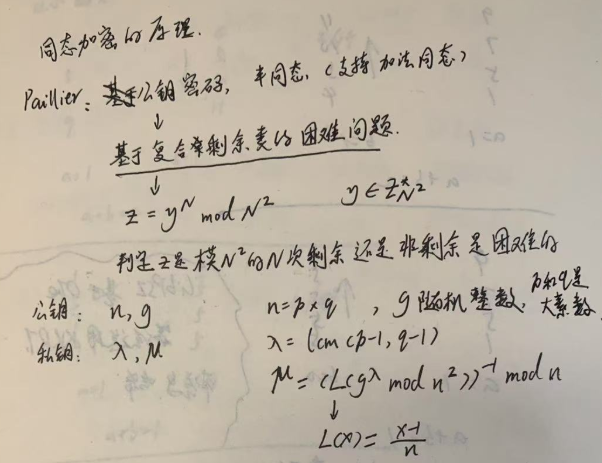 同态加密的原理.
Paillier: 公钥密码, 半同态,(支持加法同态)
↓
基于复合剩余类的困难问题.
↓
z = y^N mod N^2 y ∈ Z*_{N^2}
判定z是模N^2的N次剩余还是非剩余是困难的
公钥: n, g n = p × q , g随机整数, p和q是大素数
私钥: λ, μ λ = lcm(p-1, q-1)
μ = (L(g^λ mod n^2))^{-1} mod n
↓
L(x) = \frac{x-1}{n}